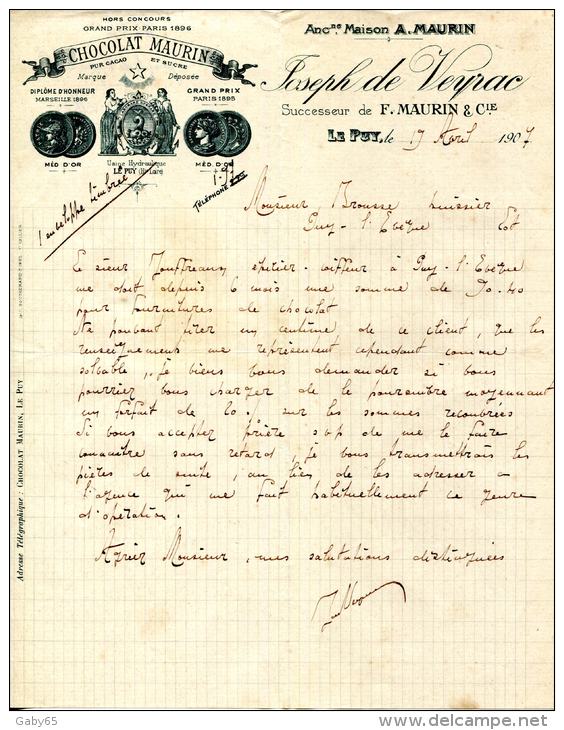 HORS CONCOURS
GRAND PRIX-PARIS 1896
CHOCOLAT MAURIN
PUR CACAO ET SUCRE
Marque Déposée
DIPLÔME D'HONNEUR
MARSEILLE 1896
GRAND PRIX
PARIS 1895
MÉD. D'OR
MÉD. D'OR
Usine Hydraulique
LE PUY (Hte Loire)
TÉLÉPHONE
1 enveloppe timbrée
Ancne. Maison A. MAURIN
Joseph de Veyrac
Successeur de F. MAURIN & CIE
LE PUY, le 17 Avril 1907
Monsieur Brousse huissier
Puy-l'Evèque Lot
Le sieur Jouffreau, épicier-coiffeur à Puy-l'Evèque
me doit depuis 6 mois une somme de 70.40
pour fournitures de chocolat
Ne pouvant tirer un centime de ce client, que les
renseignements me représentent cependant comme
solvable, je viens vous demander si vous
pourriez vous charger de le poursuivre moyennant
un forfait de 20 % sur les sommes recouvrées
Si vous acceptez prière svp de me le faire
connaître sans retard, je vous transmettrais les
pièces de suite, au lieu de les adresser a
l'agence qui me fait habituellement ce genre
d'opération.
Agréez Monsieur, mes salutations distinguées
Adresse Télégraphique : CHOCOLAT MAURIN, LE PUY
Gaby65
www.delcampe.net